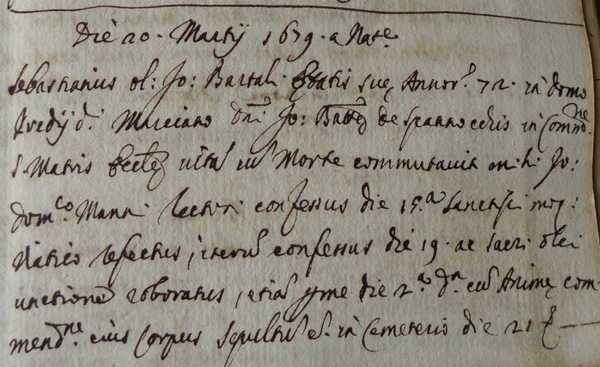 Die 20. Martij 1679. a Nate
Sebastianus ol: Jo: Bartal: Ętatis suę Annor: 72. in domo
predij d. Marciano Dni Jo: Battę de Spannocchis in Comone
S. Matris Eccłę vitā cū Morte commutavit m.h. Jo:
Domco Manni Rectori confessus die 15.a Sanctiss: moq:
Viatico refectus, iterū confessus die 19. ac sacri olei
unctione roboratus, etiā p me die 2.a Dn cū Animę com-
mendne eius Corpus sepultū e. in Cemeterio die 21